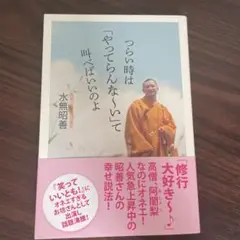 つらい時は
「やってらんな〜い」て
叫べばいいのよ
水無昭善
修行
大好き〜♪
高僧「阿闍梨」
なのにオネエ！
人気急上昇中の
昭善さんの
幸せ説法！
『笑って
いいとも！』に
オネエすぎる
お坊さんとして
出演し
話題沸騰！